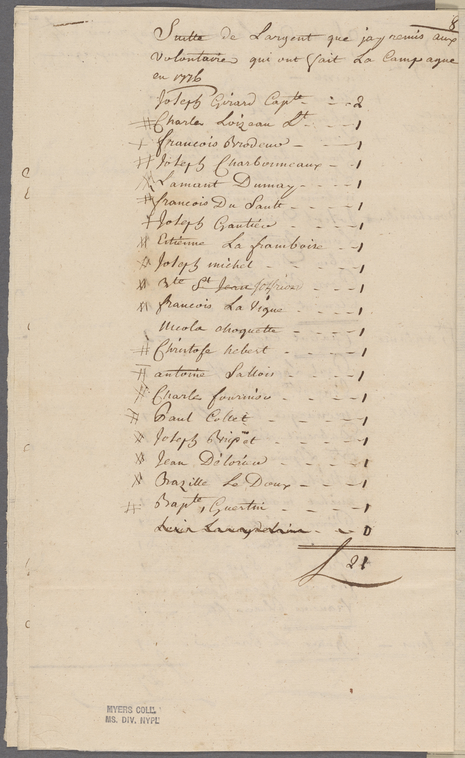 8
Suitte de Largent que jay remis aux
Volontaire qui ont fait La Campagne
en 1776
Joseph Girard Capte - - - 2
# Charles Loizeau Lt - - 1
+ francois Brodeur - - - - 1
# Joseph Charbonneaux - - - 1
# Lamant Dumay - - - - 1
# francois Du Sault - - - - 1
+ Joseph Gautier - - - - 1
# Etiénne La framboise - - - 1
# Joseph michel - - - - 1
# Bte St Jean - - - 1
# francois La Vigne - - - - 1
Nicola choquette - - - - 1
# Christofe hebert - - - - 1
# antoine Sallois - - - - 1
# Charles fournier - - - - 1
# Paul Collet - - - - 1
# Joseph - - - - 1
# Jean - - - - 1
# Bazille Le Doux - - - 1
# Bapte Guertin - - - - 1
- - 0
L 21
MYERS COLL.
MS. DIV. NYPL